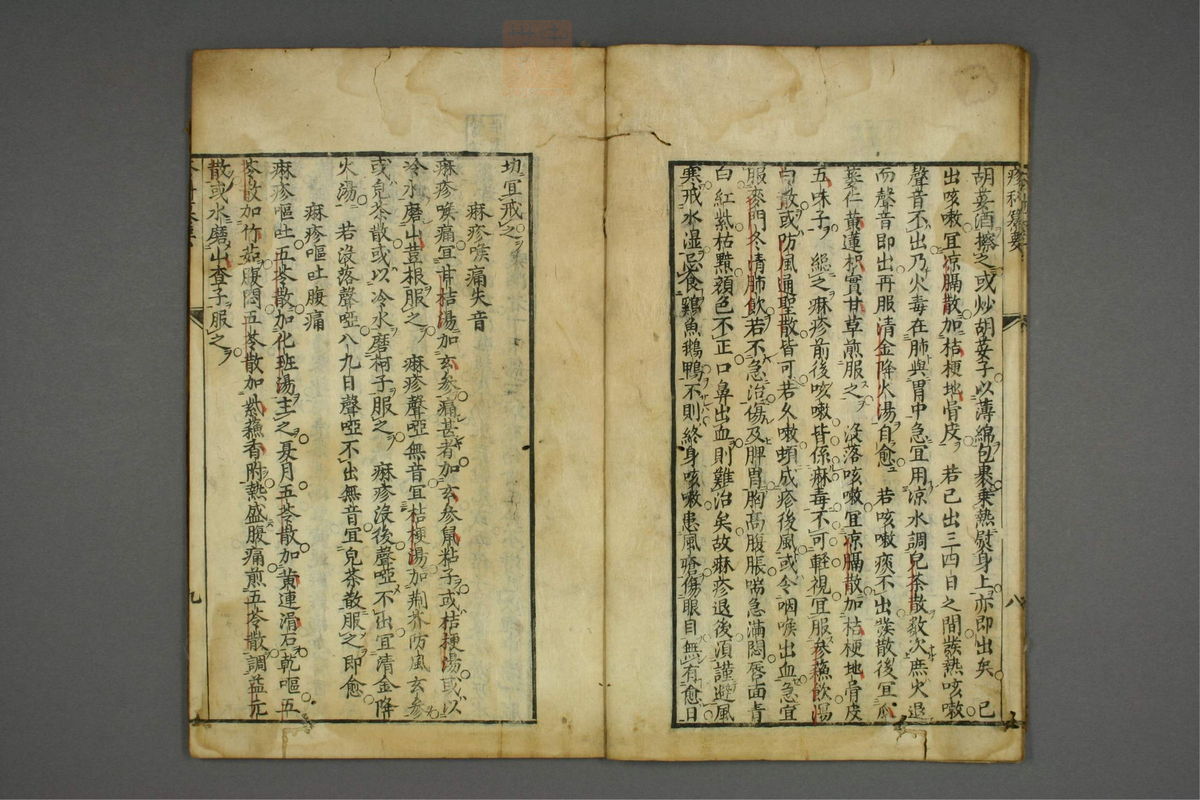 疹科纂要
八
胡荽酒擦之或炒胡荽子以薄綿包裹乗熱熨身上亦即出矣　已
出咳嗽宜凉膈散加桔梗地骨皮　若已出三四日之間發熱咳嗽
聲音不出乃火毒在肺與胃中急宜用凉水調兒茶散数次庶火退
而聲音即出再服清金降火湯自愈　若咳嗽痰不出發散後宜瓜
蔞仁黄蓮枳實甘草煎服之　沒落咳嗽宜凉膈散加桔梗地骨皮
五味子　緫之麻疹前後咳嗽皆係麻毒不可輕視宜服参蘓飲瀉
白散或防風通聖散皆可若久嗽頓成疹後風或令咽喉出血急宜
服麥門冬清肺飲若不急治傷及脾胃胸高腹脹喘急滿悶唇面青
白紅紫枯黯顔色不正口鼻出血則難治矣故麻疹退後須謹避風
寒戒水湿忌食鷄魚鵝鴨不則終身咳嗽患風瘡傷眼目無有愈日
切宜戒之
麻疹喉痛失音
麻疹喉痛宜甘桔湯加玄参痛甚者加玄参鼠粘子或桔梗湯或以
冷水磨山荳根服之　麻疹聲啞無音宜桔梗湯加荆芥防風玄参
或兒茶散或以冷水磨柯子服之　麻疹沒後聲啞不出宜清金降
火湯　若沒落聲啞八九日聲啞不出無音宜兒茶散服之即愈
麻疹嘔吐腹痛
麻疹嘔吐五苓散加化班湯主之夏月五苓散加黄連滑石乾嘔五
苓散加竹茹腹悶五苓散加紫蘓香附熱盛腹痛煎五苓散調益元
散或水磨山查子服之
九